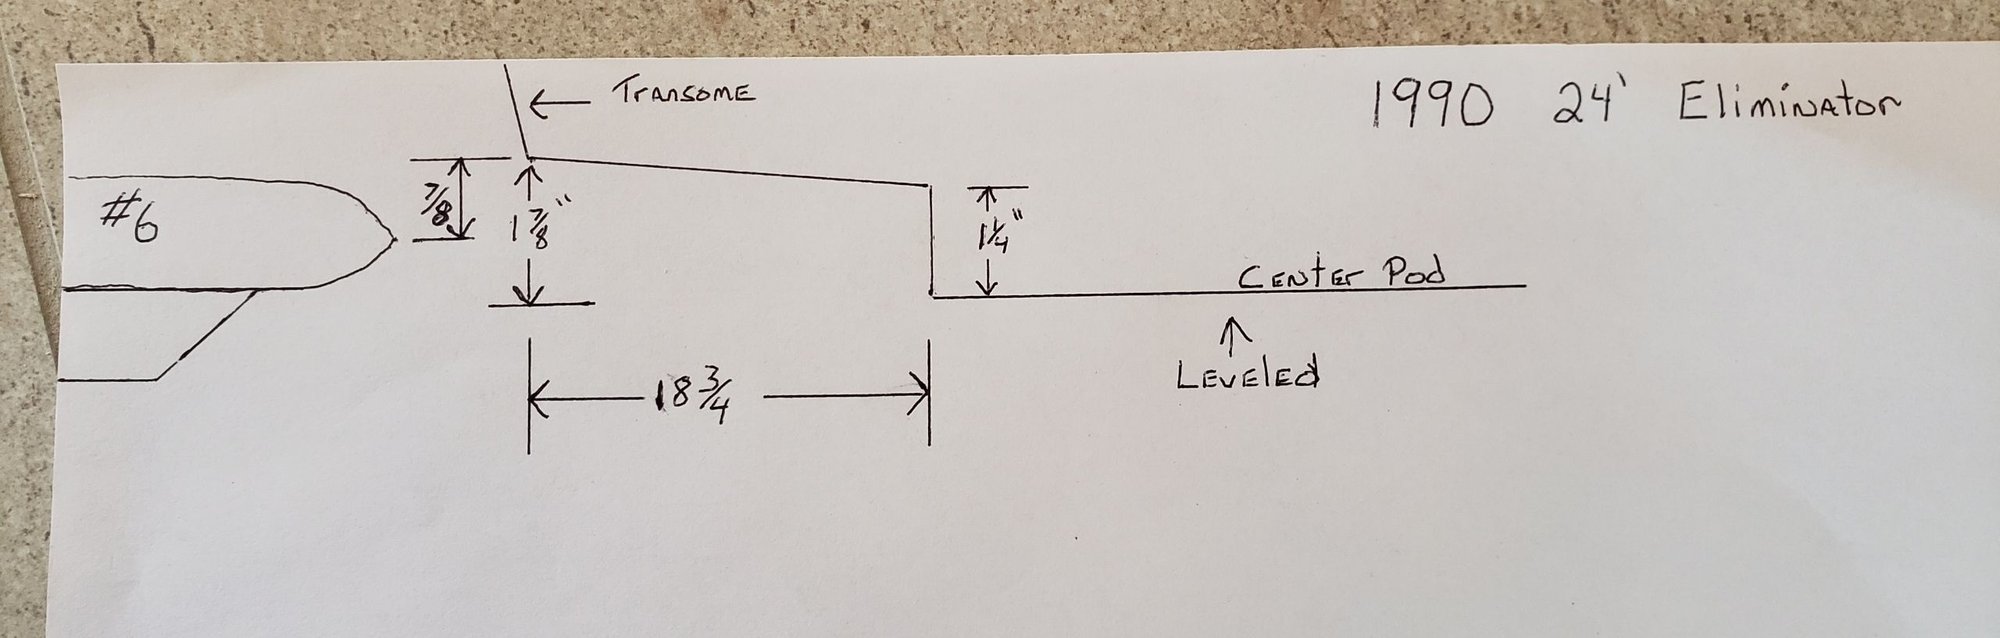 1990 24' Eliminator
Transome
#6
7/8
1 7/8"
1 1/4"
Center Pod
Leveled
18 3/4